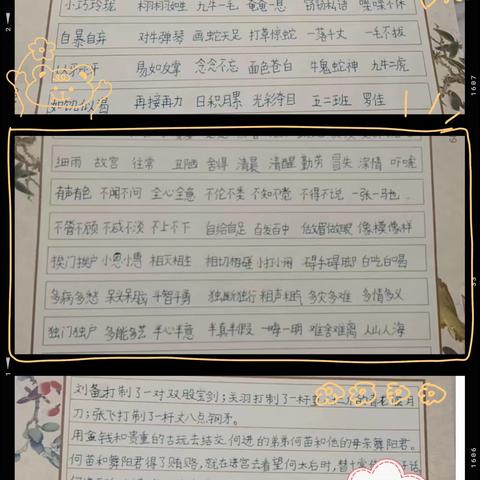 小巧玲珑 栩栩如生 九牛一毛 奄奄一息 窃窃私语 喋喋不休
自暴自弃 对牛弹琴 画蛇天足 打草惊蛇 一落千丈 一毛不拔
易如反掌 念念不忘 面色苍白 牛鬼蛇神 九牛二虎
如饥似渴 再接再力 日积月累 光彩夺目 五二班 罗佳
细雨 故宫 往常 丑陋 舍得 清晨 清醒 勤劳 冒失 深情 吓唬
有声有色 不闻不问 全心全意 不伦不类 不知不觉 不得不说 一张一弛
不管不顾 不咸不淡 不上不下 自给自足 百发百中 做眉做眼 像模像样
挨门挨户 小恩小惠 相灭相生 相切相磋 小打小闹 碍手碍脚 白吃白喝
多病多愁 呆头呆脑 斗智斗勇 独断独行 粗声粗气 多灾多难 多情多义
独门独户 多能多艺 半心半意 半真半假 一晦一明 难舍难离 人山人海
刘备打制了一对双股宝剑;关羽打制了一杆
刀;张飞打制了一杆丈八点钢矛。
用金钱和贵重的古玩去结交何进的弟弟何苗和他的母亲舞阳君。
何苗和舞阳君得了贿赂,就在进宫去看望何太后时,替十常侍
1607
33
1606
2
1